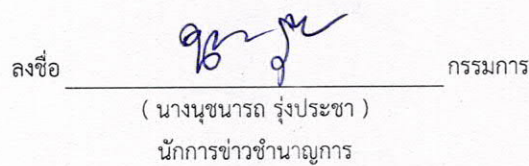 ลงชื่อ กรรมการ
( นางนุชนารถ รุ่งประชา )
นักการข่าวชำนาญการ